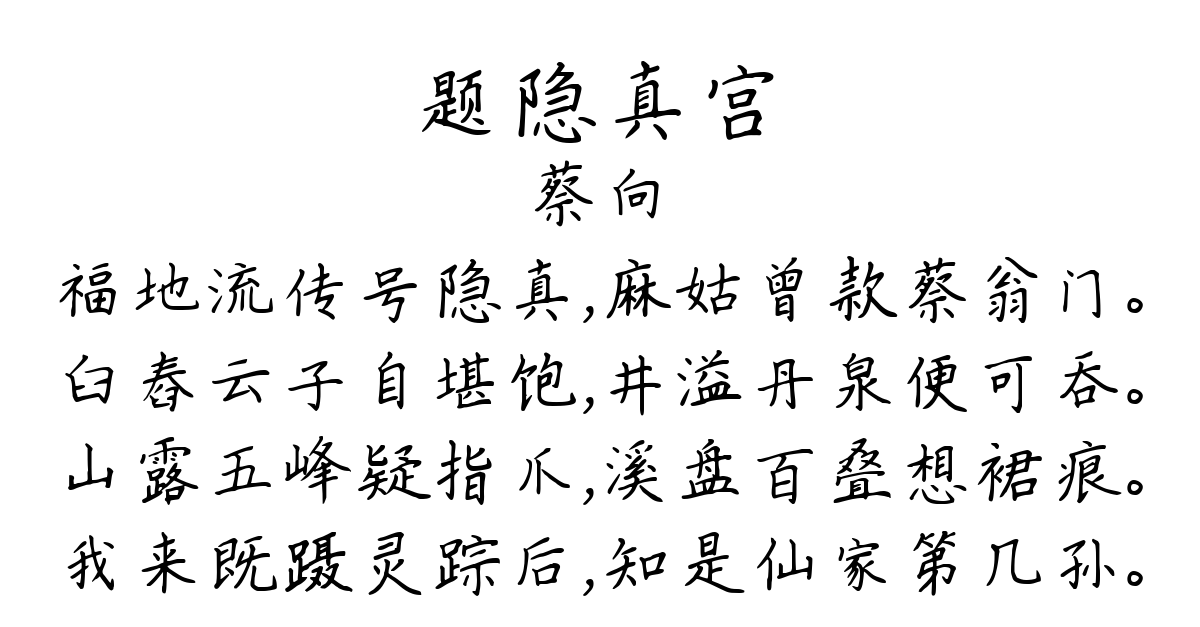 题隐真宫
蔡向
福地流传号隐真,麻姑曾款蔡翁门。
臼舂云子自堪饱,井溢丹泉便可吞。
山露五峰疑指爪,溪盘百叠想裙痕。
我来既蹑灵踪后,知是仙家第几孙。